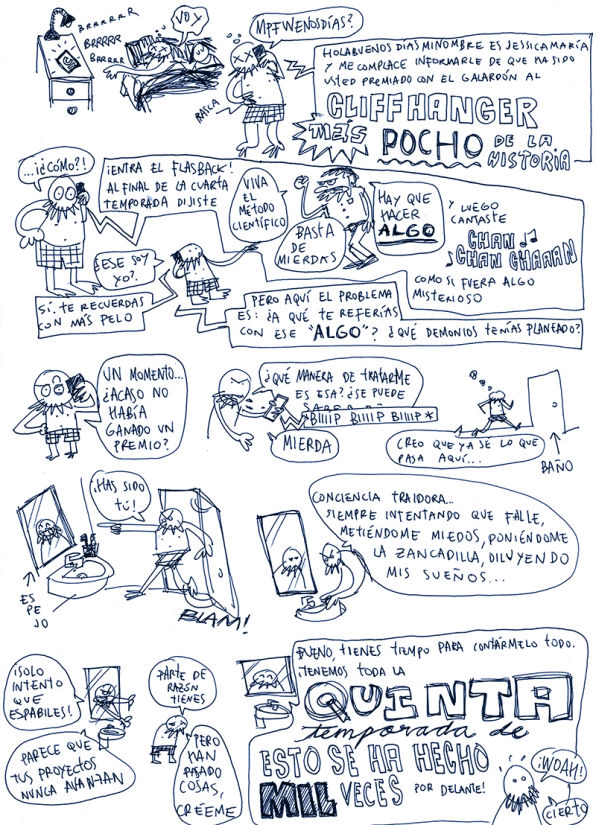 BRRRRRR
BRRRRR
BRRRRR
VOY
RASCA
MPFWENOSDÍAS?
HOLABUENOS DÍAS MI NOMBRE ES JESSICA MARÍA
Y ME COMPLACE INFORMARLE DE QUE HA SIDO
USTED PREMIADO CON EL GALARDÓN AL
CLIFFHANGER
MÁS POCHO DE LA
HISTORIA
...¡¿CÓMO?!
¡ENTRA EL FLASBACK!
AL FINAL DE LA CUARTA
TEMPORADA DIJISTE
VIVA
EL
MÉTODO
CIENTÍFICO
BASTA
DE
MIERDAS
HAY QUE
HACER
ALGO
Y LUEGO
CANTASTE
CHAN
CHAN CHAAAN
COMO SI FUERA ALGO
MISTERIOSO
¿ESE SOY
YO?
SÍ. TE RECUERDAS
CON MÁS PELO
PERO AQUÍ EL PROBLEMA
ES: ¿A QUÉ TE REFERÍAS
CON ESE "ALGO"? ¿QUÉ DEMONIOS TENÍAS PLANEADO?
UN MOMENTO...
¿ACASO NO
HABÍA
GANADO UN
PREMIO?
¿QUÉ MANERA DE TRATARME
ES ESA? ¿SE PUEDE
*BIIIIP BIIIIP BIIIIP*
MIERDA
CREO QUE YA SÉ LO QUE
PASA AQUÍ...
BAÑO
¡HAS SIDO
TÚ!
ES
PE
JO
BLAM!
CONCIENCIA TRAIDORA...
SIEMPRE INTENTANDO QUE FALLE,
METIÉNDOME MIEDOS, PONIÉNDOME
LA ZANCADILLA, DILUYENDO
MIS SUEÑOS...
¡SOLO
INTENTO
QUE
ESPABILES!
PARECE QUE
TUS PROYECTOS
NUNCA AVANZAN
PARTE DE
RAZÓN
TIENES
PERO
HAN
PASADO
COSAS,
CRÉEME
BUENO, TIENES TIEMPO PARA CONTÁRMELO TODO.
¡TENEMOS TODA LA
QUINTA
temporada de
ESTO SE HA HECHO
MIL VECES POR DELANTE!
¡WOAH!
CIERTO